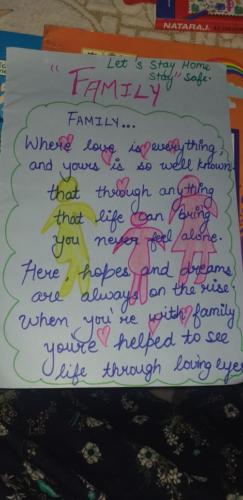 NATARAJ
" Let's Stay Home
Stay" Safe.
FAMILY
FAMILY...
Where love is everything
and yours is so well known
that through anything
that life can bring
you never feel alone.
Here, hopes and dreams
are always on the rise.
When you're with family
you're helped to see
life through loving eyes